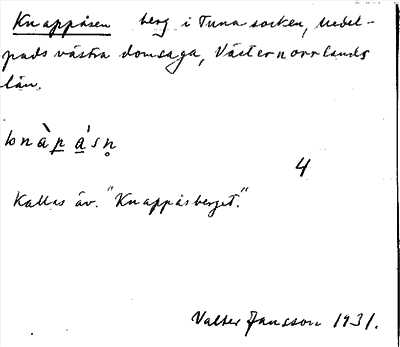 Knappåsen berg i Tuna socken, Medel-
pads västra domsaga, Västernorrlands
län.
knàp̲á̲sn̥
4
Kallas äv. "Knappåsberget."
Valter Jansson 1931.